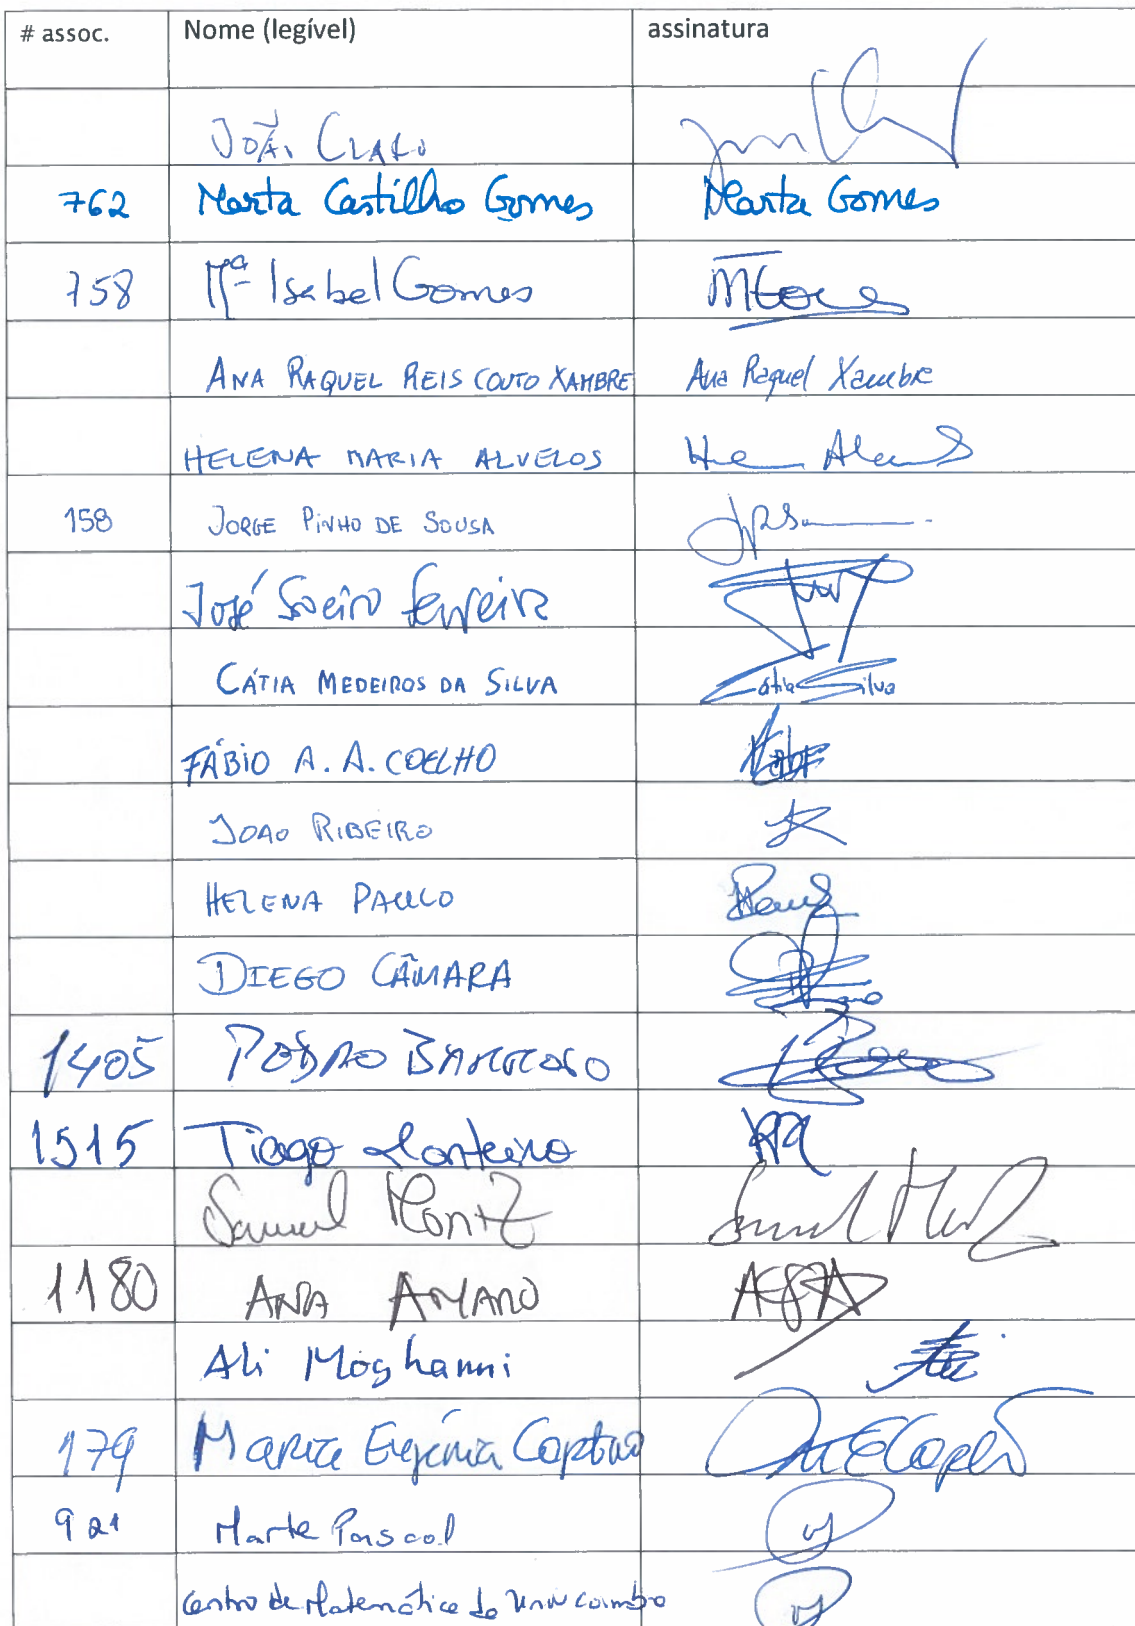 # assoc. Nome (legível) assinatura
João Claro
762 Marta Castilho Gomes Marta Gomes
758 Mª Isabel Gomes
ANA RAQUEL REIS COUTO XAMBRE Ana Raquel Xambre
HELENA MARIA ALVELOS
158 JORGE PINHO DE SOUSA
José Soeiro Ferreira
CÁTIA MEDEIROS DA SILVA Cátia Silva
FÁBIO A. A. COELHO
JOAO RIBEIRO
HELENA PAULO
DIEGO CÂMARA
1405 PEDRO BARROSO
1515 Tiago Monteiro
Samuel Moniz Samuel Moniz
1180 ANA AMARO
Ali Moghanni
179 Maria Eugénia Captivo
921 Marta Pascoal
Centro de Matemática da Univ Coimbra